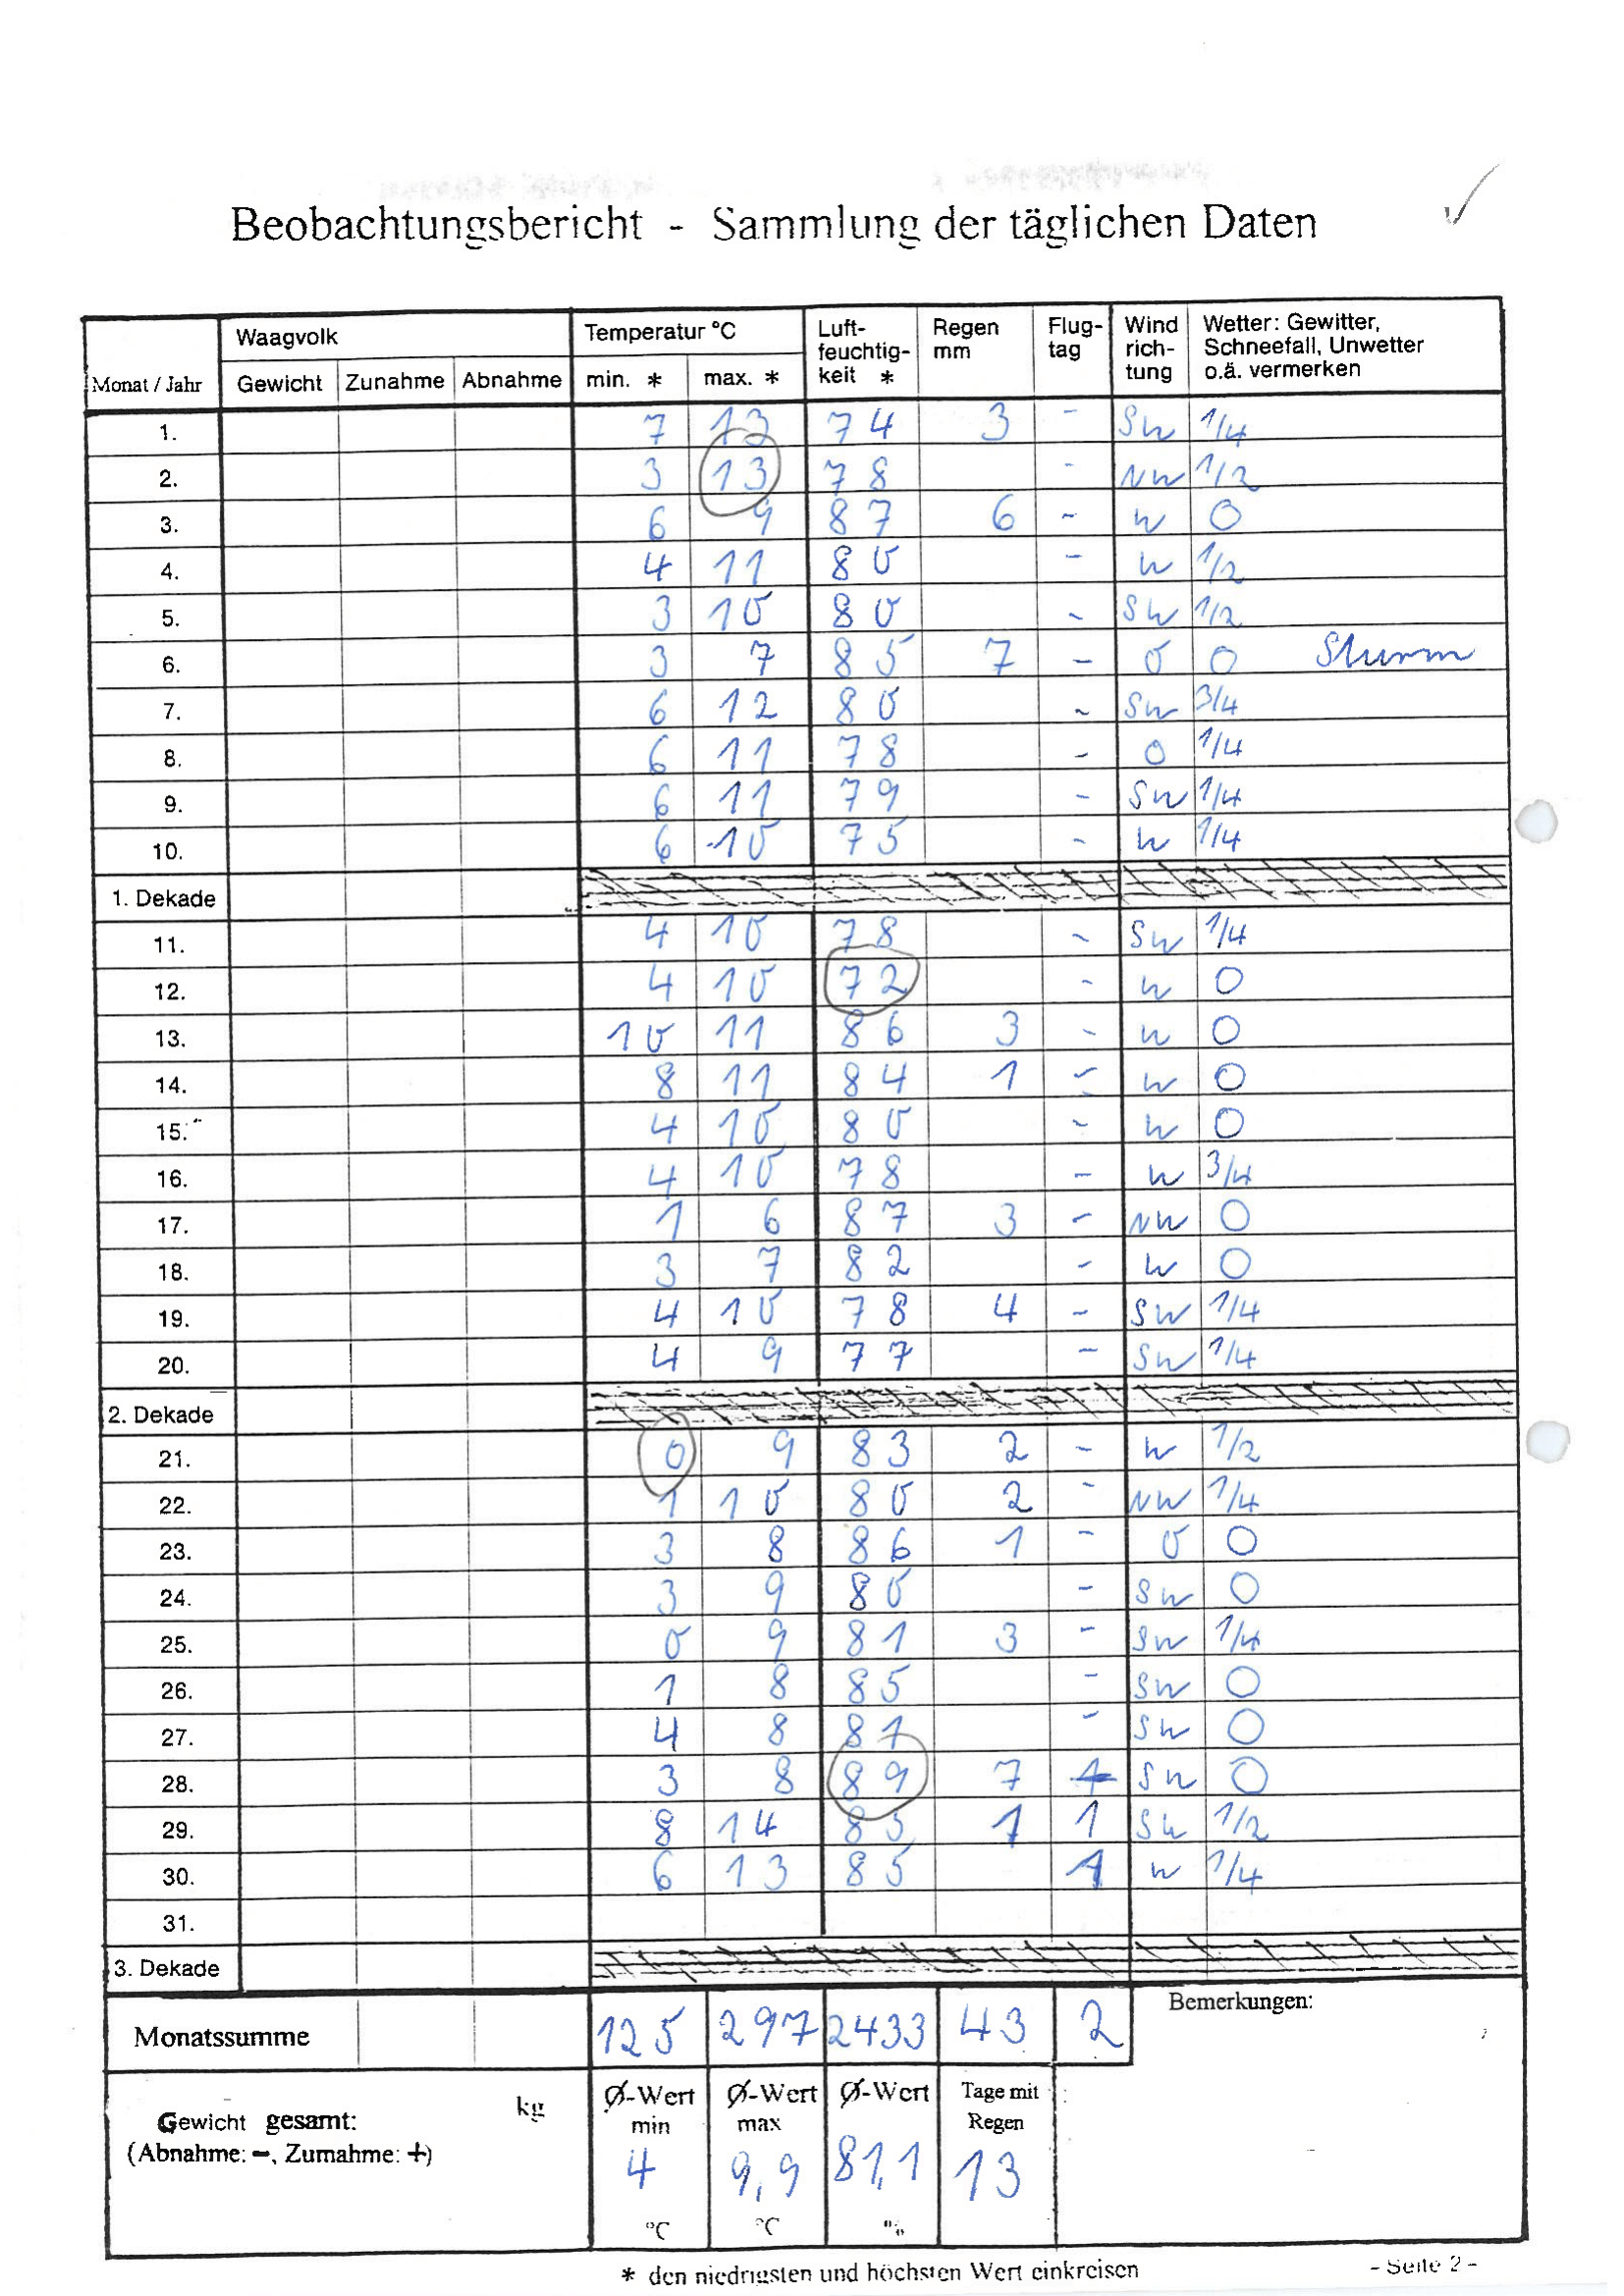 Beobachtungsbericht - Sammlung der täglichen Daten
Monat / Jahr Waagvolk Temperatur °C Luft-feuchtig-keit * Regen mm Flug-tag Wind rich-tung Wetter: Gewitter, Schneefall, Unwetter o.ä. vermerken
Gewicht Zunahme Abnahme min. * max. *
1. 7 13 74 3 - SW 1/4
2. 3 13 78 - NW 1/2
3. 6 9 87 6 - W 0
4. 4 11 80 - W 1/2
5. 3 10 80 - SW 1/2
6. 3 7 85 7 - O 0 Sturm
7. 6 12 80 - SW 3/4
8. 6 11 78 - O 1/4
9. 6 11 79 - SW 1/4
10. 6 10 75 - W 1/4
1. Dekade
11. 4 10 78 - SW 1/4
12. 4 10 72 - W 0
13. 10 11 86 3 - W 0
14. 8 11 84 1 - W 0
15. 4 10 80 - W 0
16. 4 10 78 - W 3/4
17. 1 6 87 3 - NW 0
18. 3 7 82 - W 0
19. 4 10 78 4 - SW 1/4
20. 4 9 77 - SW 1/4
2. Dekade
21. 0 9 83 2 - W 1/2
22. 1 10 80 2 - NW 1/4
23. 3 8 86 1 - O 0
24. 3 9 80 - SW 0
25. 0 9 81 3 - SW 1/4
26. 1 8 85 - SW 0
27. 4 8 81 - SW 0
28. 3 8 89 7 SW 0
29. 8 14 85 1 1 SW 1/2
30. 6 13 85 1 W 1/4
31.
3. Dekade
Monatssumme 125 297 2433 43 2 Bemerkungen:
Gewicht gesamt: kg
(Abnahme: -, Zumahme: +)
Ø-Wert min 4 °C
Ø-Wert max 9,9 °C
Ø-Wert 81,1 %
Tage mit Regen 13
* den niedrigsten und höchsten Wert einkreisen
- Seite 2 -